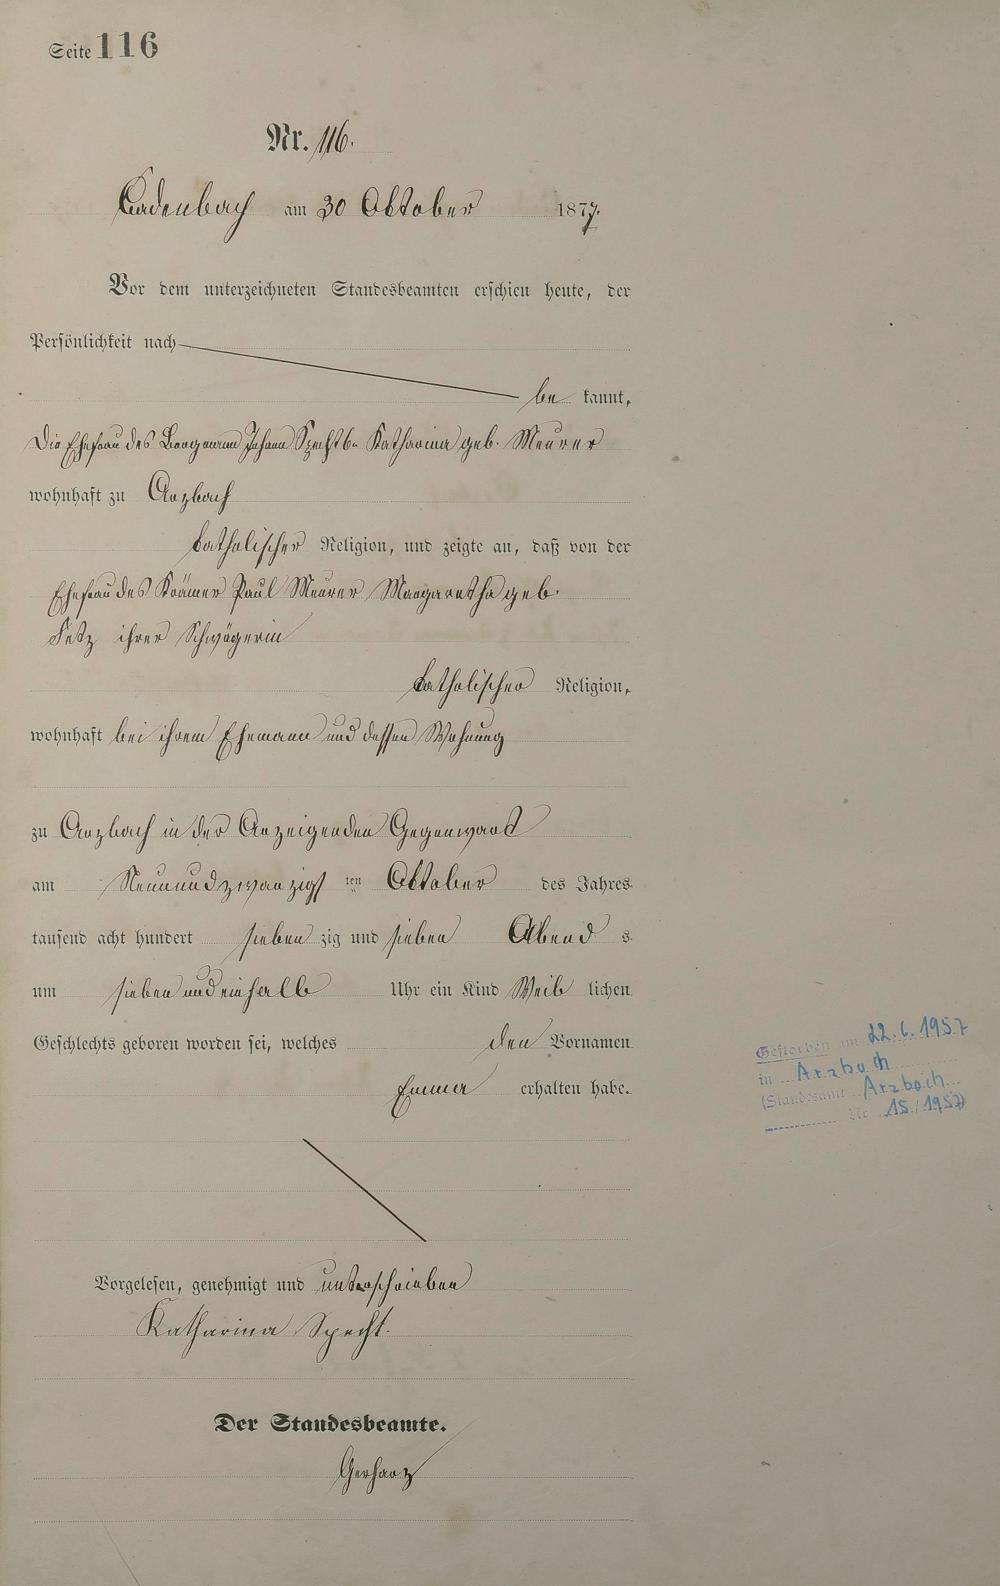 Seite 116
Nr. 116.
Cadenbach am 30 Oktober 1877.
Vor dem unterzeichneten Standesbeamten erschien heute, der
Persönlichkeit nach
be kannt,
Die Ehefrau des Bergmann Johann Specht Katharina geb. Meurer
wohnhaft zu Arzbach
katholischer Religion, und zeigte an, daß von der
Ehefrau des Krämer Paul Meurer Margaretha geb.
Fetz ihrer Schwägerin
katholischer Religion,
wohnhaft bei ihrem Ehemann und dessen Wohnung
zu Arzbach in der Anzeigenden Gegenwart
am Neunundzwanzigs ten Oktober des Jahres
tausend acht hundert sieben zig und sieben Abend s
um sieben und einhalb Uhr ein Kind Weib lichen
Geschlechts geboren worden sei, welches den Vornamen
Emma erhalten habe.
Vorgelesen, genehmigt und unterschrieben
Katharina Specht.
Der Standesbeamte.
Gerharz
Gestorben am 22.6.1957
in Arzbach
(Standesamt Arzbach
Nr. 15/1957)